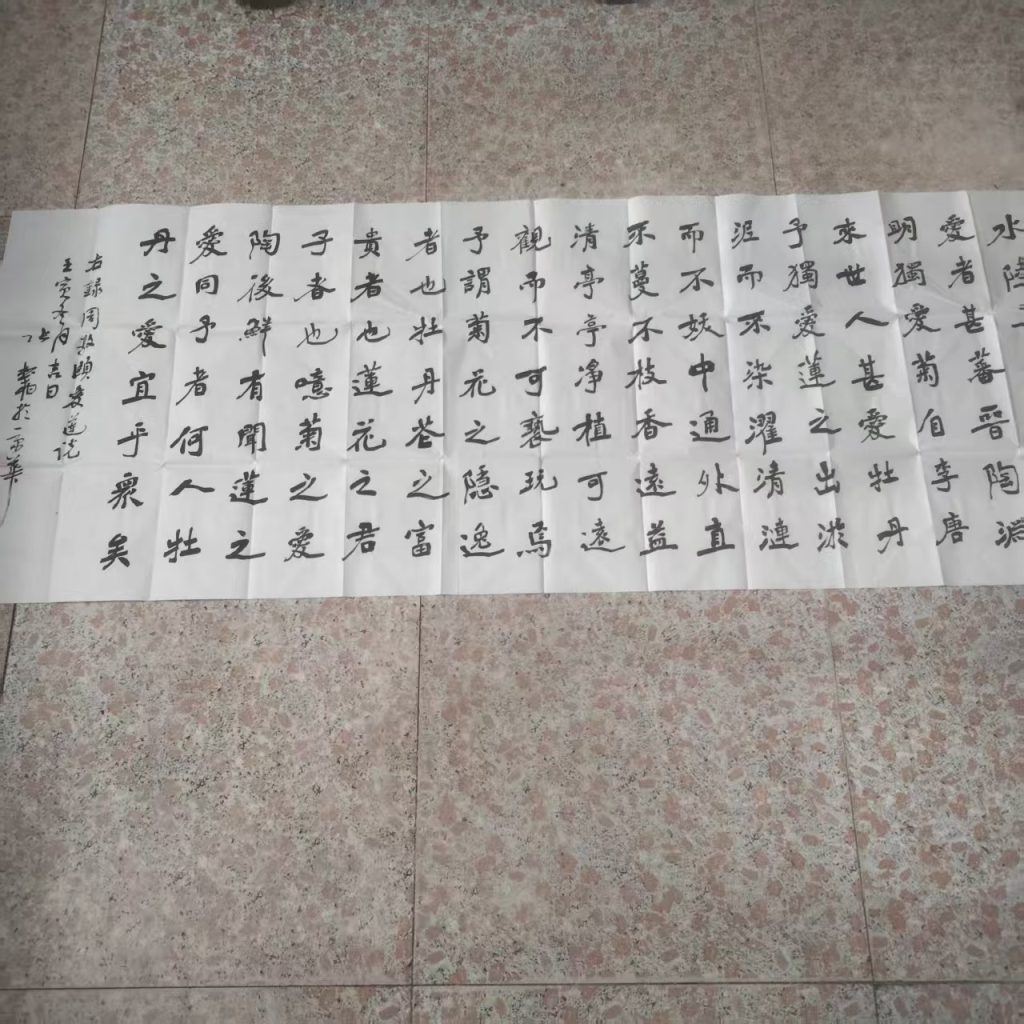 水陸
愛者甚蕃晉陶淵
明獨愛菊自李唐
來世人甚愛牡丹
予獨愛蓮之出淤
泥而不染濯清漣
而不妖中通外直
不蔓不枝香遠益
清亭亭淨植可遠
觀而不可褻玩焉
予謂菊花之隱逸
者也牡丹花之富
貴者也蓮花之君
子者也噫菊之愛
陶後鮮有聞蓮之
愛同予者何人牡
丹之愛宜乎衆矣
右録周敦頤愛蓮説
壬寅冬月上吉日
於京華